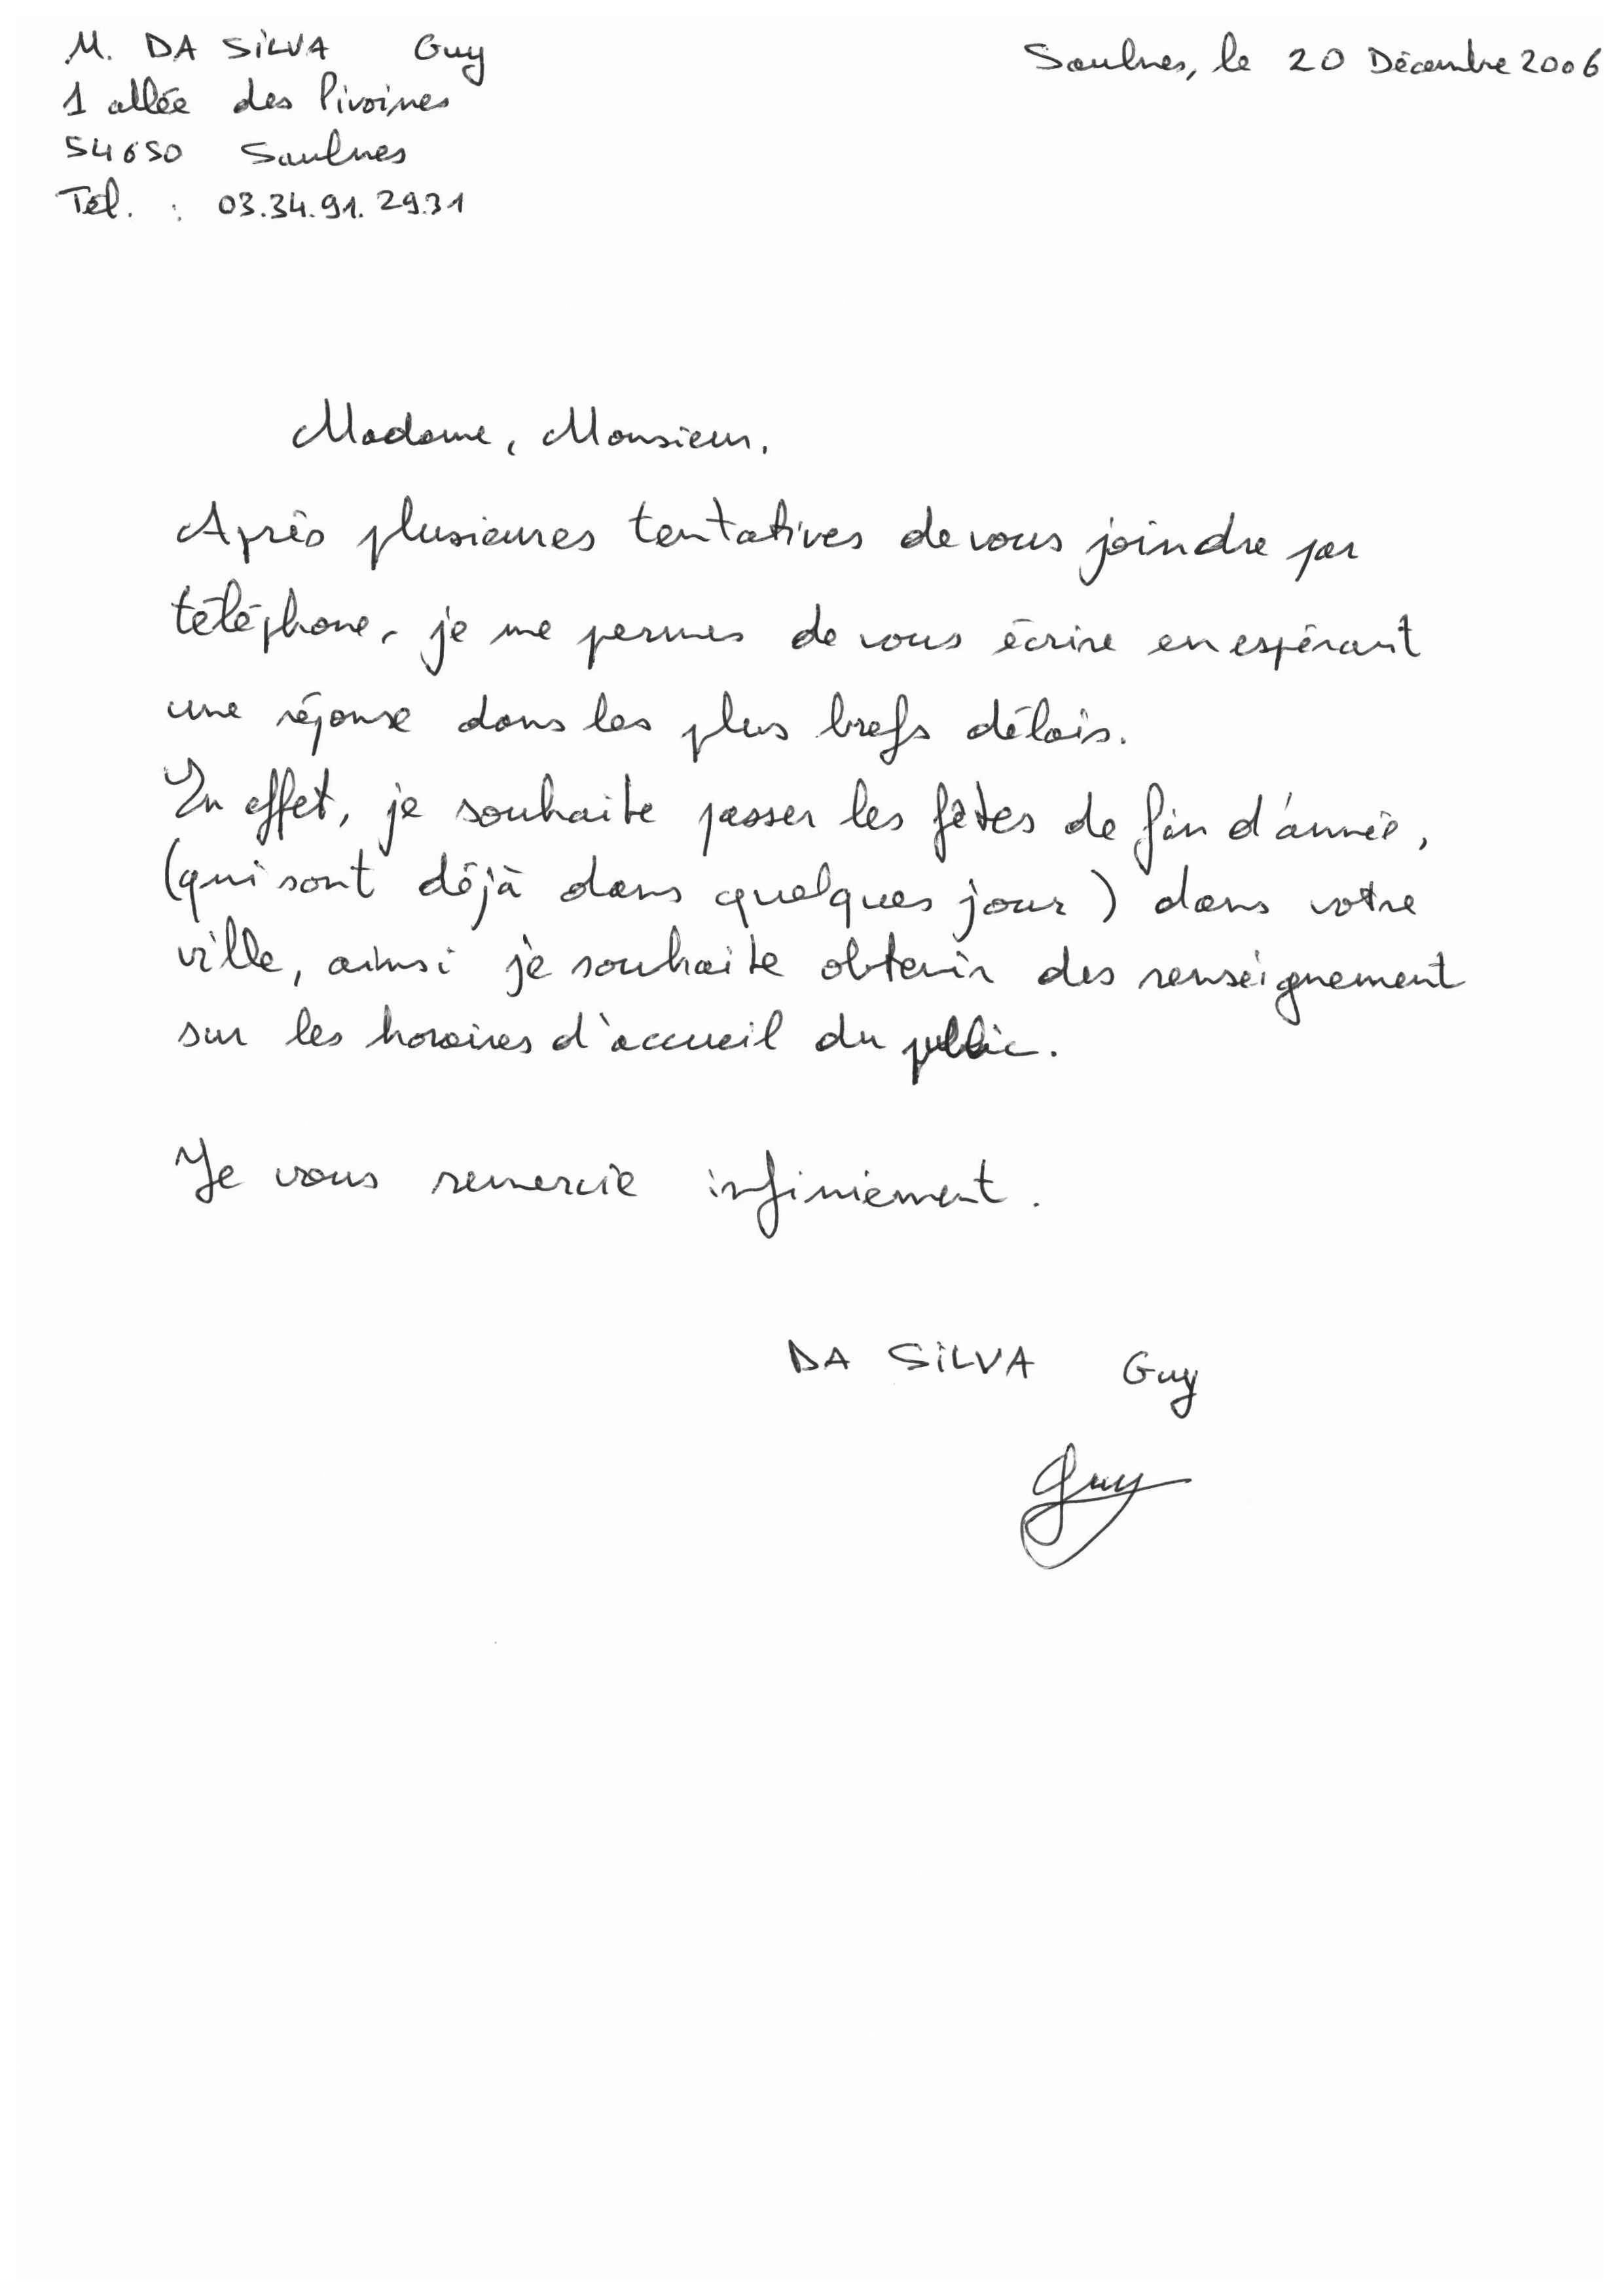 M. DA SILVA Guy
Saulnes, le 20 Décembre 2006
1 allée des Pivoines
54650 Saulnes
Tél. : 03.34.91.29.31
Madame, Monsieur,
Après plusieures tentatives de vous joindre par
téléphone, je me permes de vous écrire en espérant
une réponse dans les plus brefs délais.
En effet, je souhaite passer les fêtes de fin d'année,
(qui sont déjà dans quelques jour) dans votre
ville, ainsi je souhaite obtenir des renseignement
sur les horaires d'accueil du public.
Je vous remercie infiniement.
DA SILVA Guy
Guy